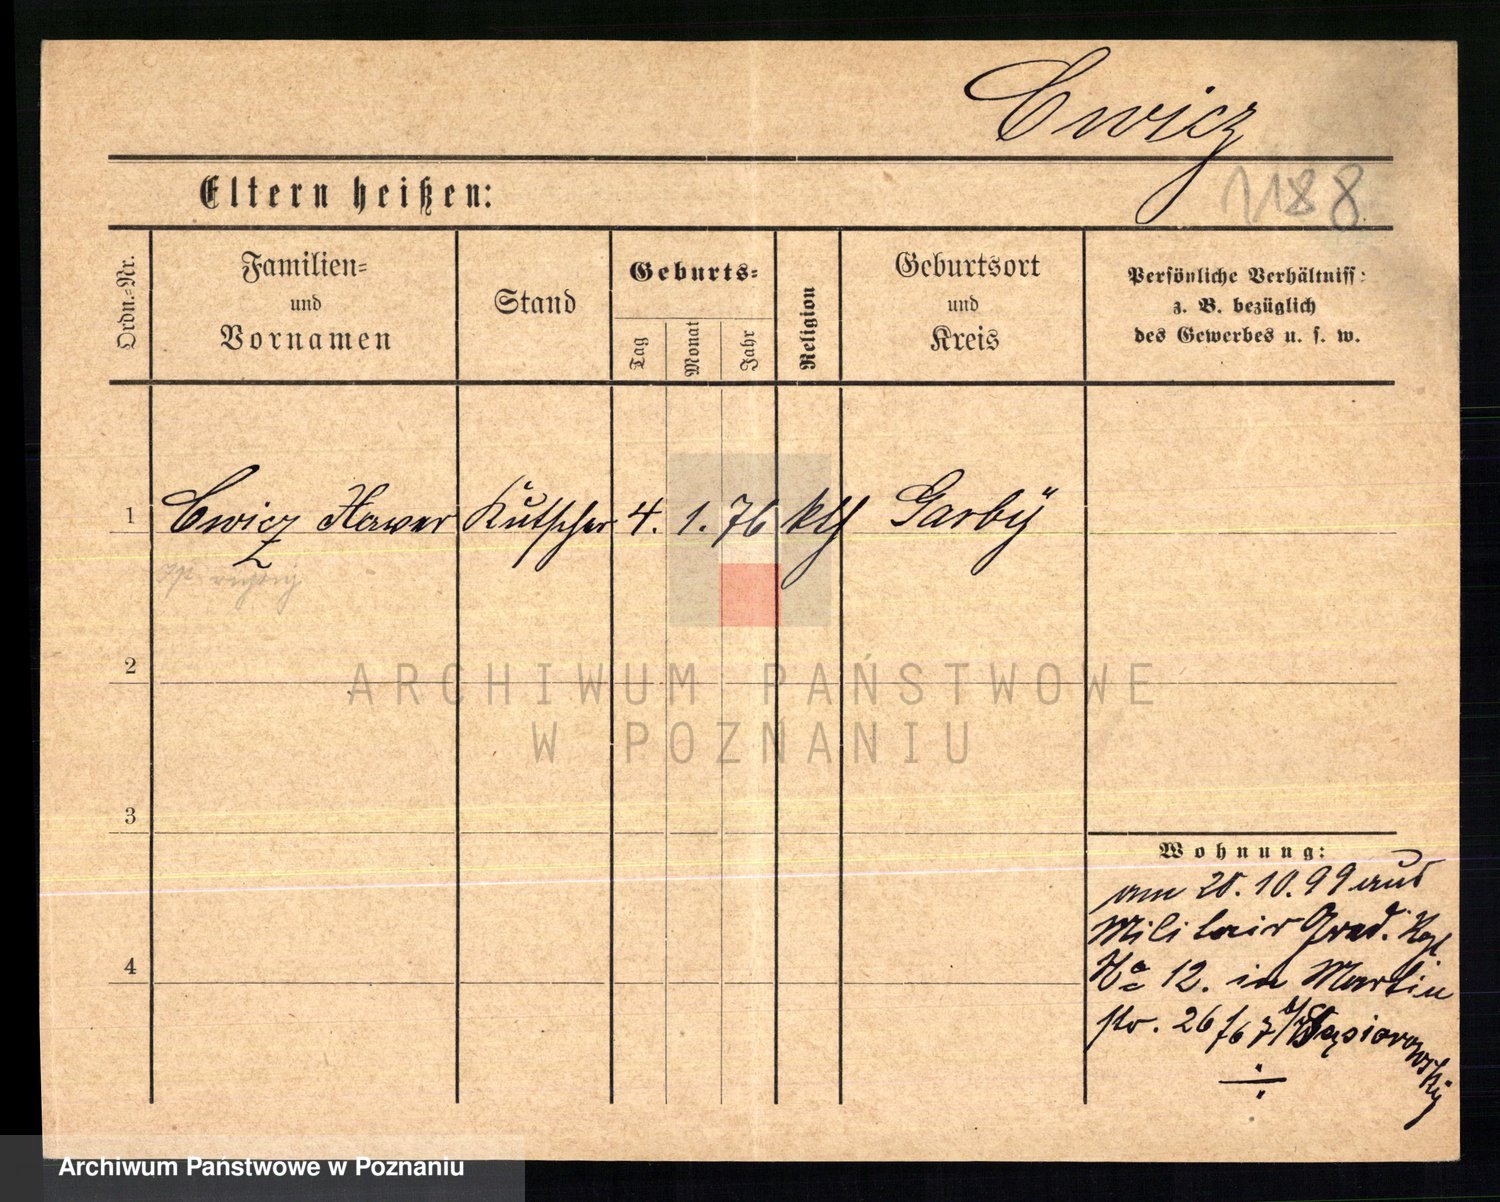 Cwicz
1188
Eltern heißen:
Ordn.-Nr.
Familien-
und
Vornamen
Stand
Geburts-
Tag
Monat
Jahr
Religion
Geburtsort
und
Kreis
Persönliche Verhältniss:
z. B. bezüglich
des Gewerbes u. s. w.
1 Cwicz Xawer Kutscher 4. 1. 76 kth Garby
2
3
4
ARCHIWUM PAŃSTWOWE
W POZNANIU
Wohnung:
am 20.10.99 aus
Militair Gred. Rgt
No 12. in Martin
str. 26
Archiwum Państwowe w Poznaniu